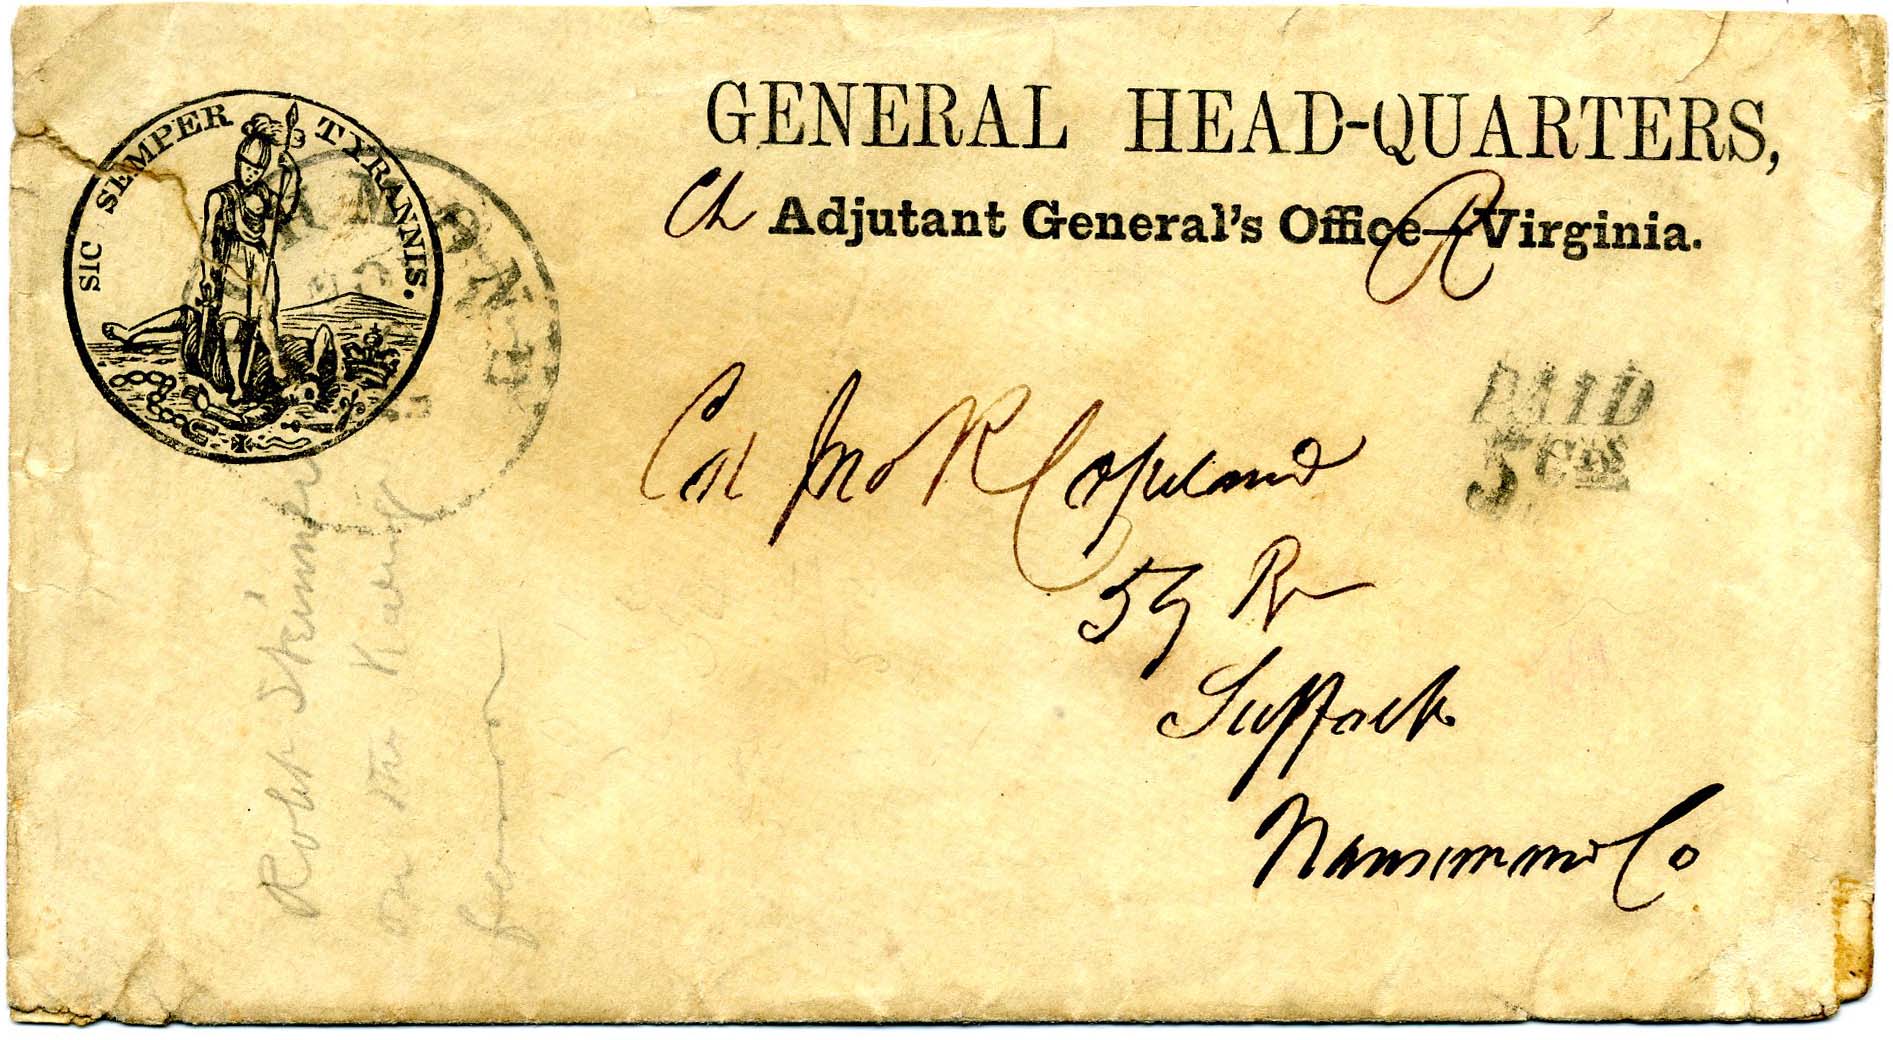 SIC SEMPER TYRANNIS.
GENERAL HEAD-QUARTERS,
Ch Adjutant General's Office—Virginia.
R
PAID
5 CTS
Col Jno R Copeland
59 R
Suffolk
Nansemond Co
Robt
on the